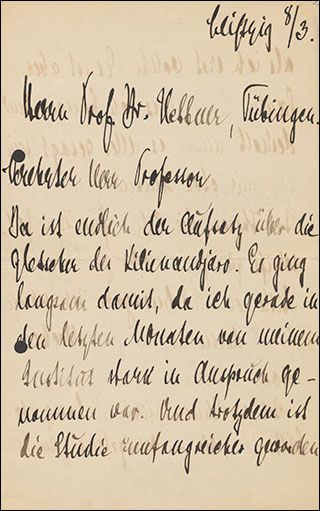 Leipzig 8/3.
Herrn Prof. Dr. Hettner, Tübingen.
Verehrter Herr Professor
Da ist endlich der Aufsatz über die
Gletscher des Kilimandjaro. Es ging
langsam damit, da ich gerade in
den letzten Monaten von meinem
Institut stark in Anspruch ge-
nommen war. Und trotzdem ist
die Studie umfangreicher geworden